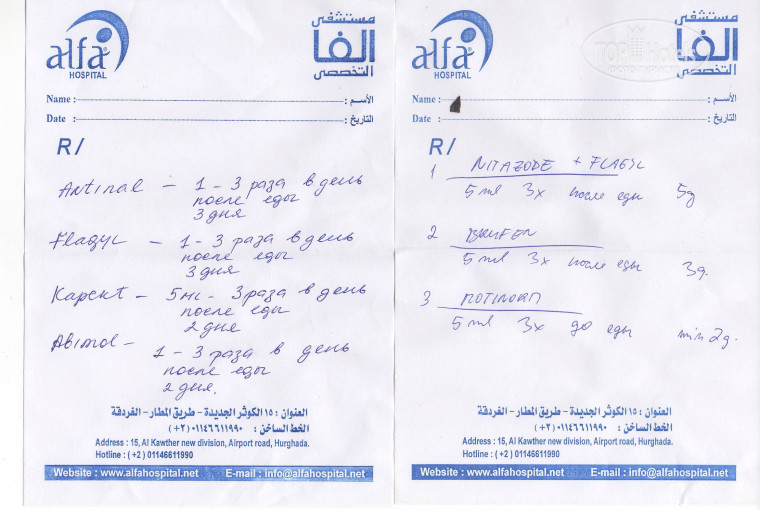 alfa
HOSPITAL
مستشفى
الفا
التخصصى
Name : الأسم :
Date : التاريخ :
R/
Antinal - 1 - 3 раза в день
после еды
3 дня
Flagyl - 1 - 3 раза в день
после еды
3 дня
Kapect - 5 мл - 3 раза в день
после еды
2 дня
Abimol - 1 - 3 раза в день
после еды
2 дня.
العنوان : ١٥ الكوثر الجديدة - طريق المطار - الغردقة
الخط الساخن : ٠١١٤٦٦١١٩٩٠ (٢+)
Address : 15, Al Kawther new division, Airport road, Hurghada.
Hotline : ( +2 ) 01146611990
Website : www.alfahospital.net E-mail : info@alfahospital.net
alfa
HOSPITAL
مستشفى
الفا
التخصصى
TOP Hotels
Name : الأسم :
Date : التاريخ :
R/
1 NITAZODE + FLAGYL
5 ml 3x после еды 5g
2 BRUFEN
5 ml 3x после еды 3g.
3 MOTINORM
5 ml 3x до еды min 2g.
العنوان : ١٥ الكوثر الجديدة - طريق المطار - الغردقة
الخط الساخن : ٠١١٤٦٦١١٩٩٠ (٢+)
Address : 15, Al Kawther new division, Airport road, Hurghada.
Hotline : ( +2 ) 01146611990
Website : www.alfahospital.net E-mail : info@alfahospital.net